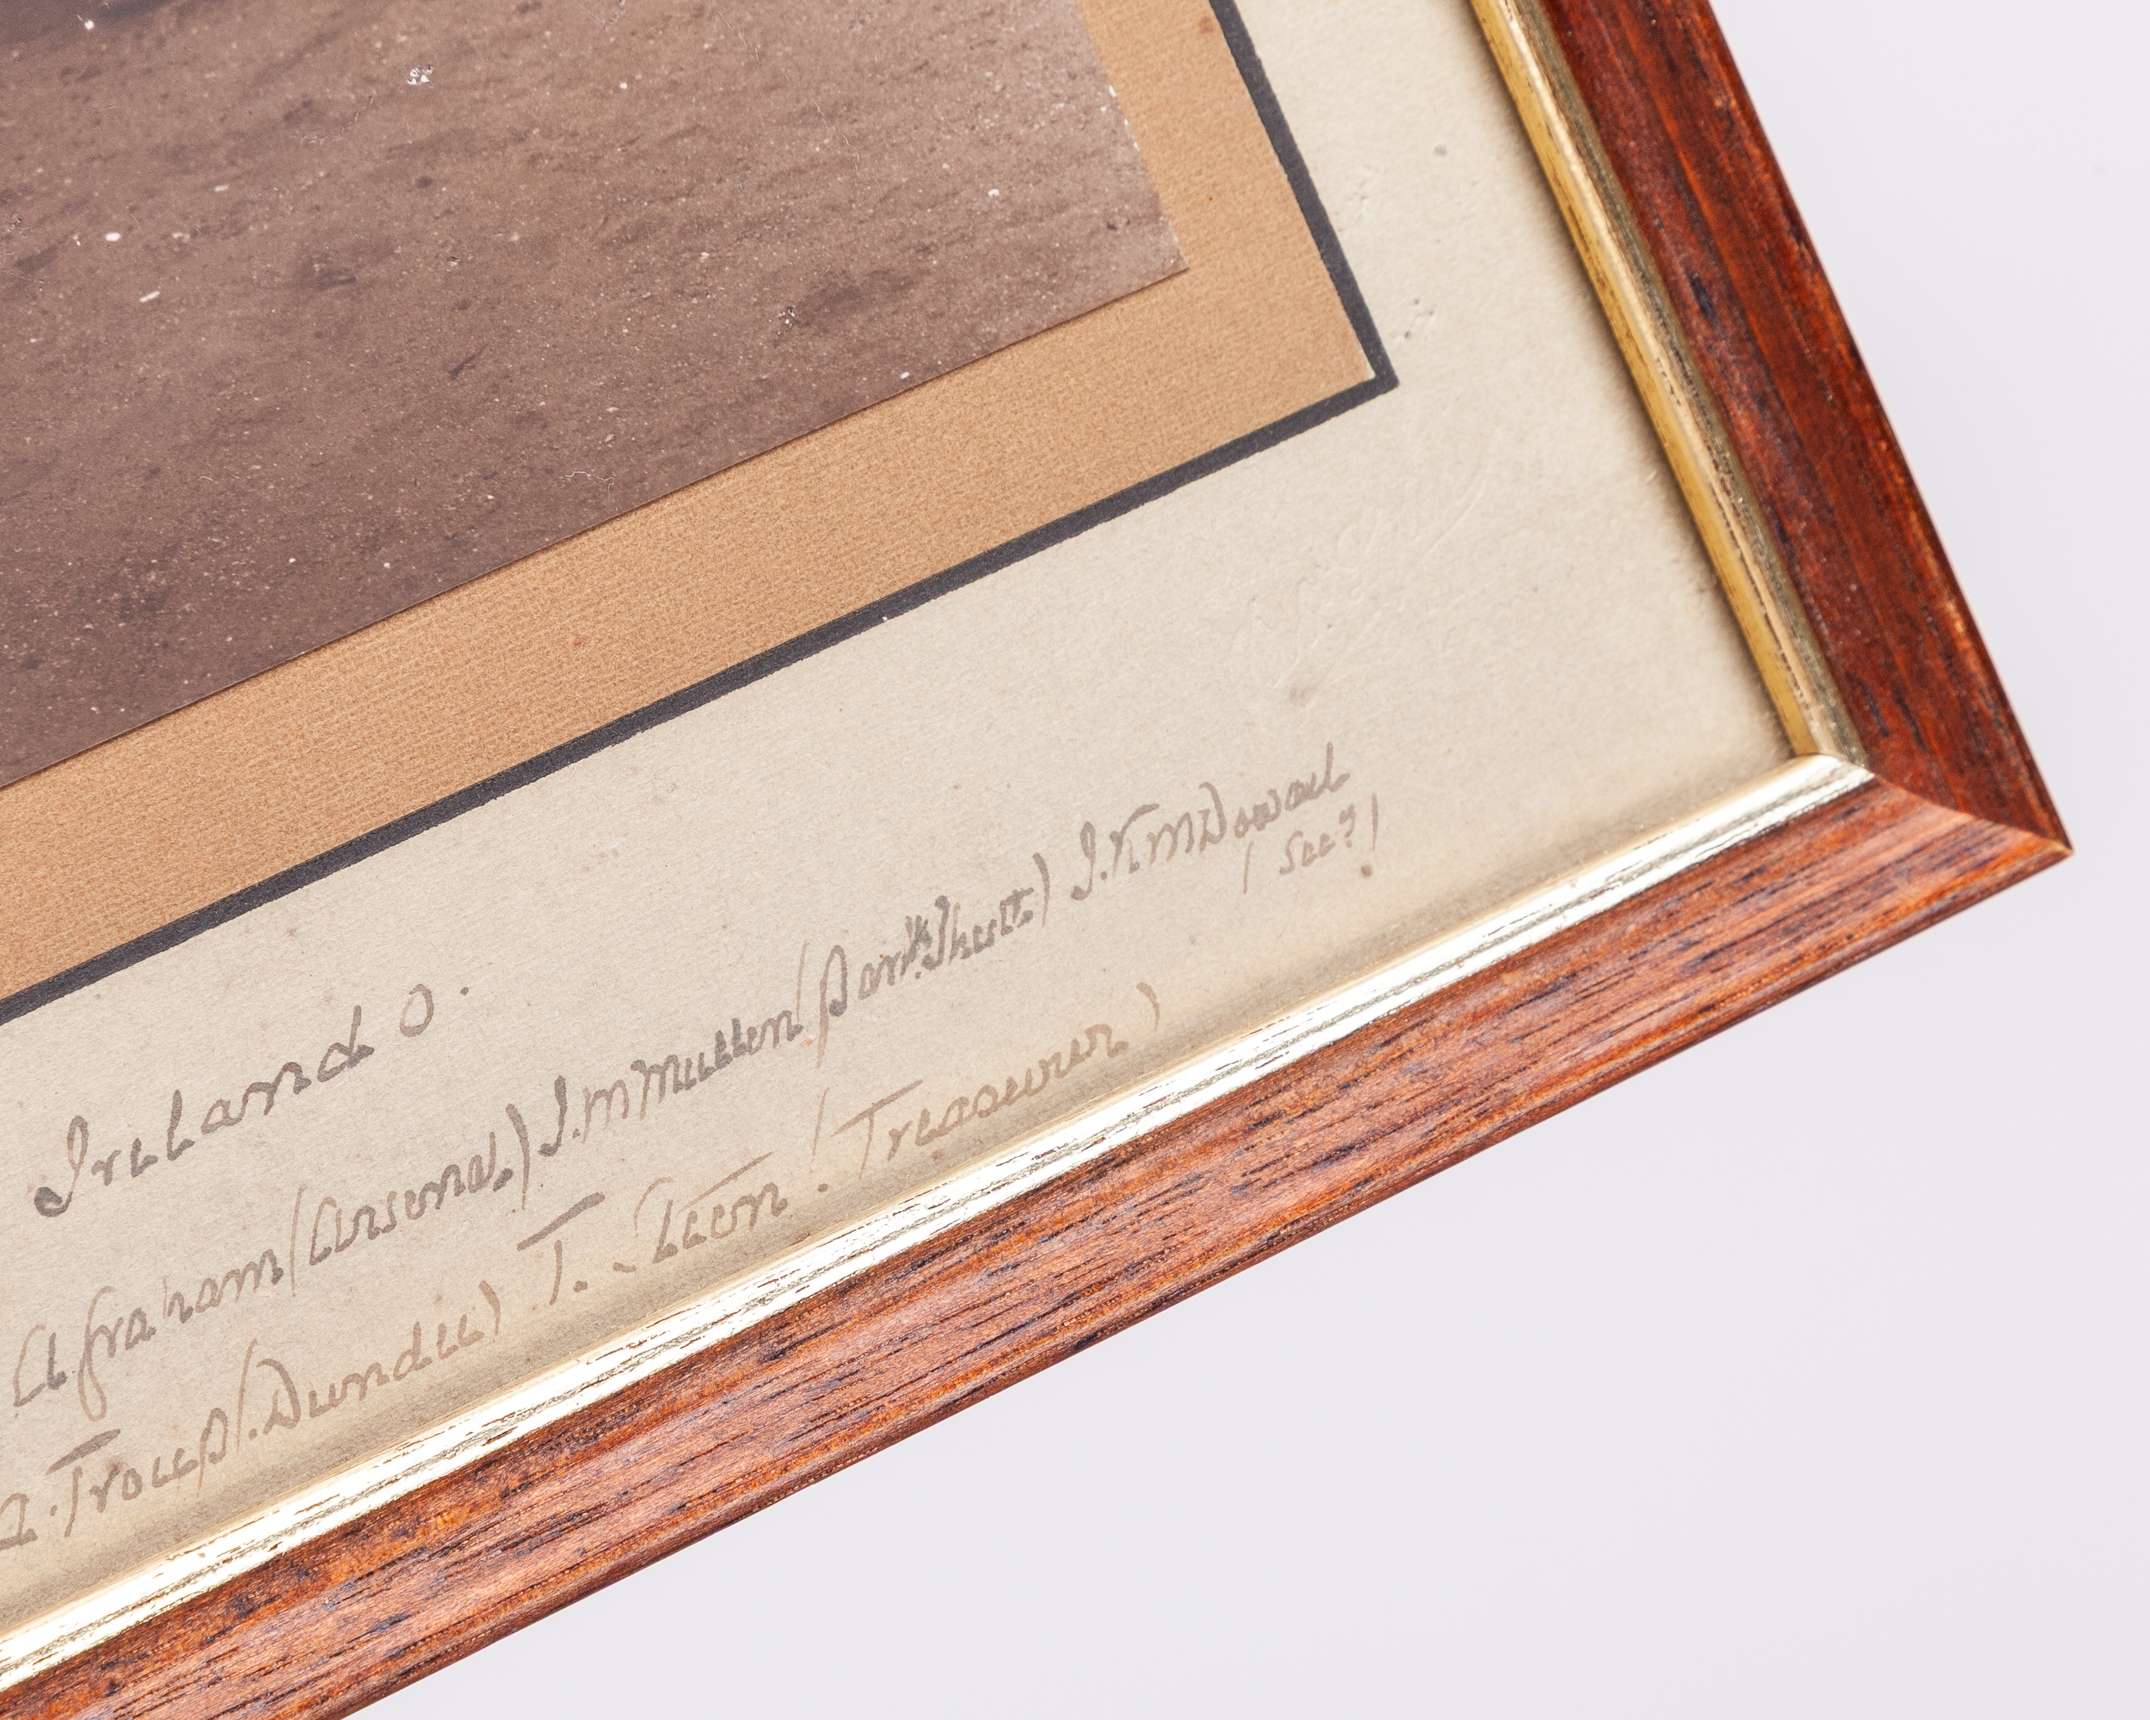 Ireland 0.
A. Graham (Arsenal) J. McMullen (Park. Thist.) J. K. McDowall
(Secy)
A. Troup (Dundee) T. Steen (Treasurer)